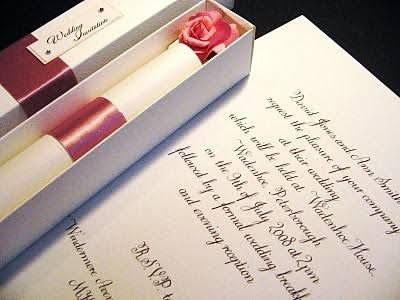 Wedding
Invitation
David Jones and Ann Smith
request the pleasure of your company
at their wedding
which will be held at Wadenhoe House,
Wadenhoe, Peterborough
on the 9th of July 2008 at 2pm
followed by a formal wedding breakf
and evening reception
RSVP t
Windermere Aven